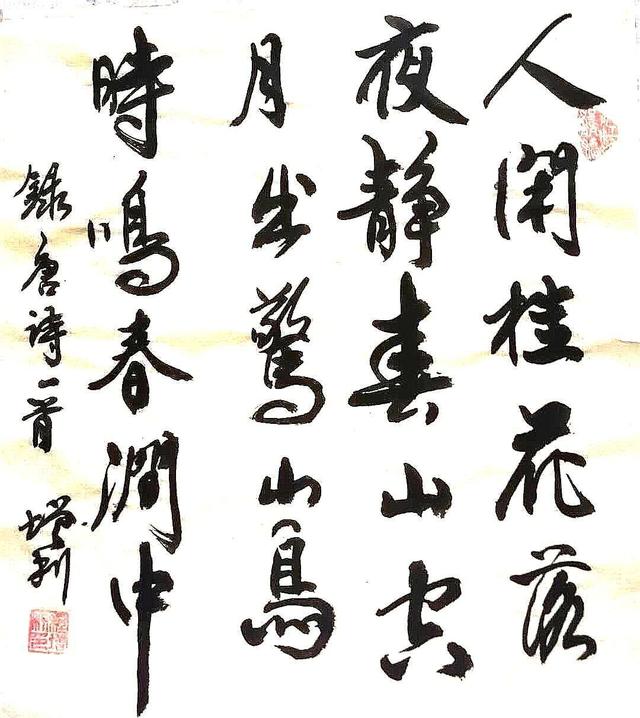 人閑桂花落
夜靜春山空
月出驚山鳥
時鳴春澗中
錄唐詩一首
增利